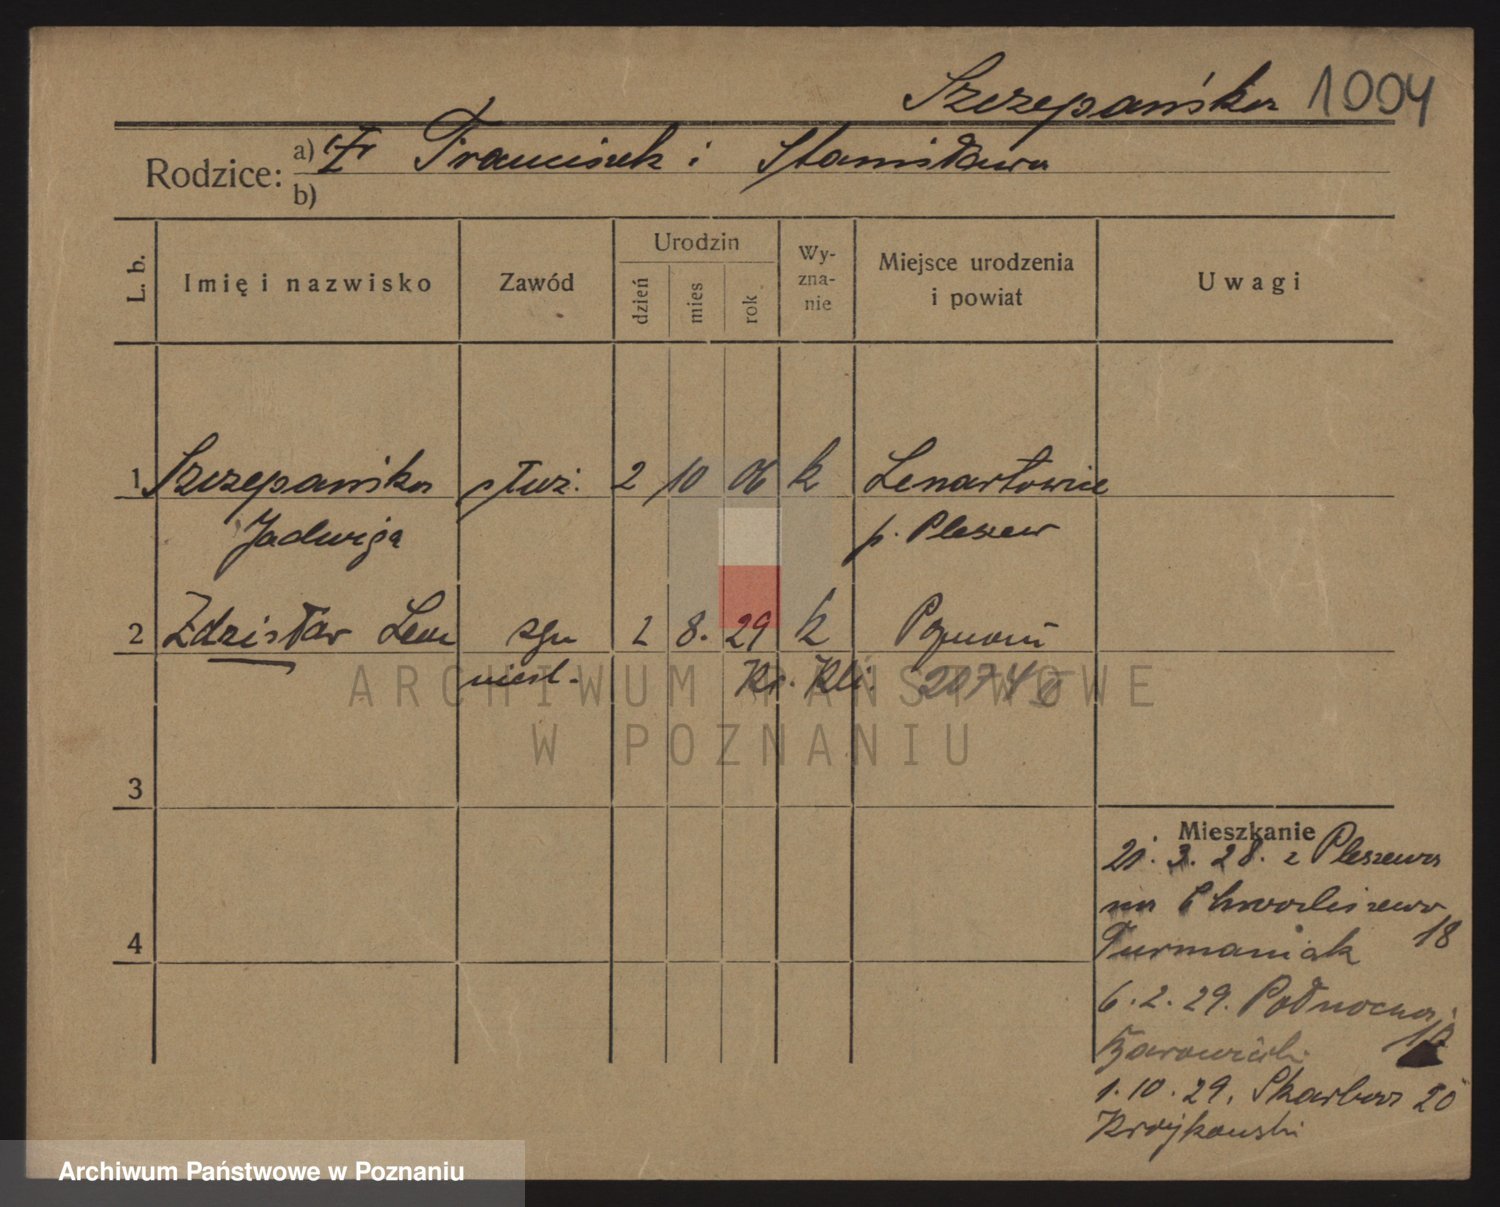 Szczepańska 1004
Rodzice: a) Franciszek i Stanisława
b)
L. b.
Imię i nazwisko
Zawód
Urodzin
dzień
mies
rok
Wy-
zna-
nie
Miejsce urodzenia
i powiat
Uwagi
1 Szczepańska służ. 2 10 06 k Lenartowice
Jadwiga p. Pleszew
2 Zdzisław Leon 2 8. 29 k Poznań
Kr. Kli.
ARCHIWUM PAŃSTWOWE
W POZNANIU
3
4
Mieszkanie
21. 3. 28. z Pleszewa
na Chwaliszewo
18
Furmaniak
6. 2. 29. Północna
17
1. 10. 29. Skarbowa 20
Archiwum Państwowe w Poznaniu